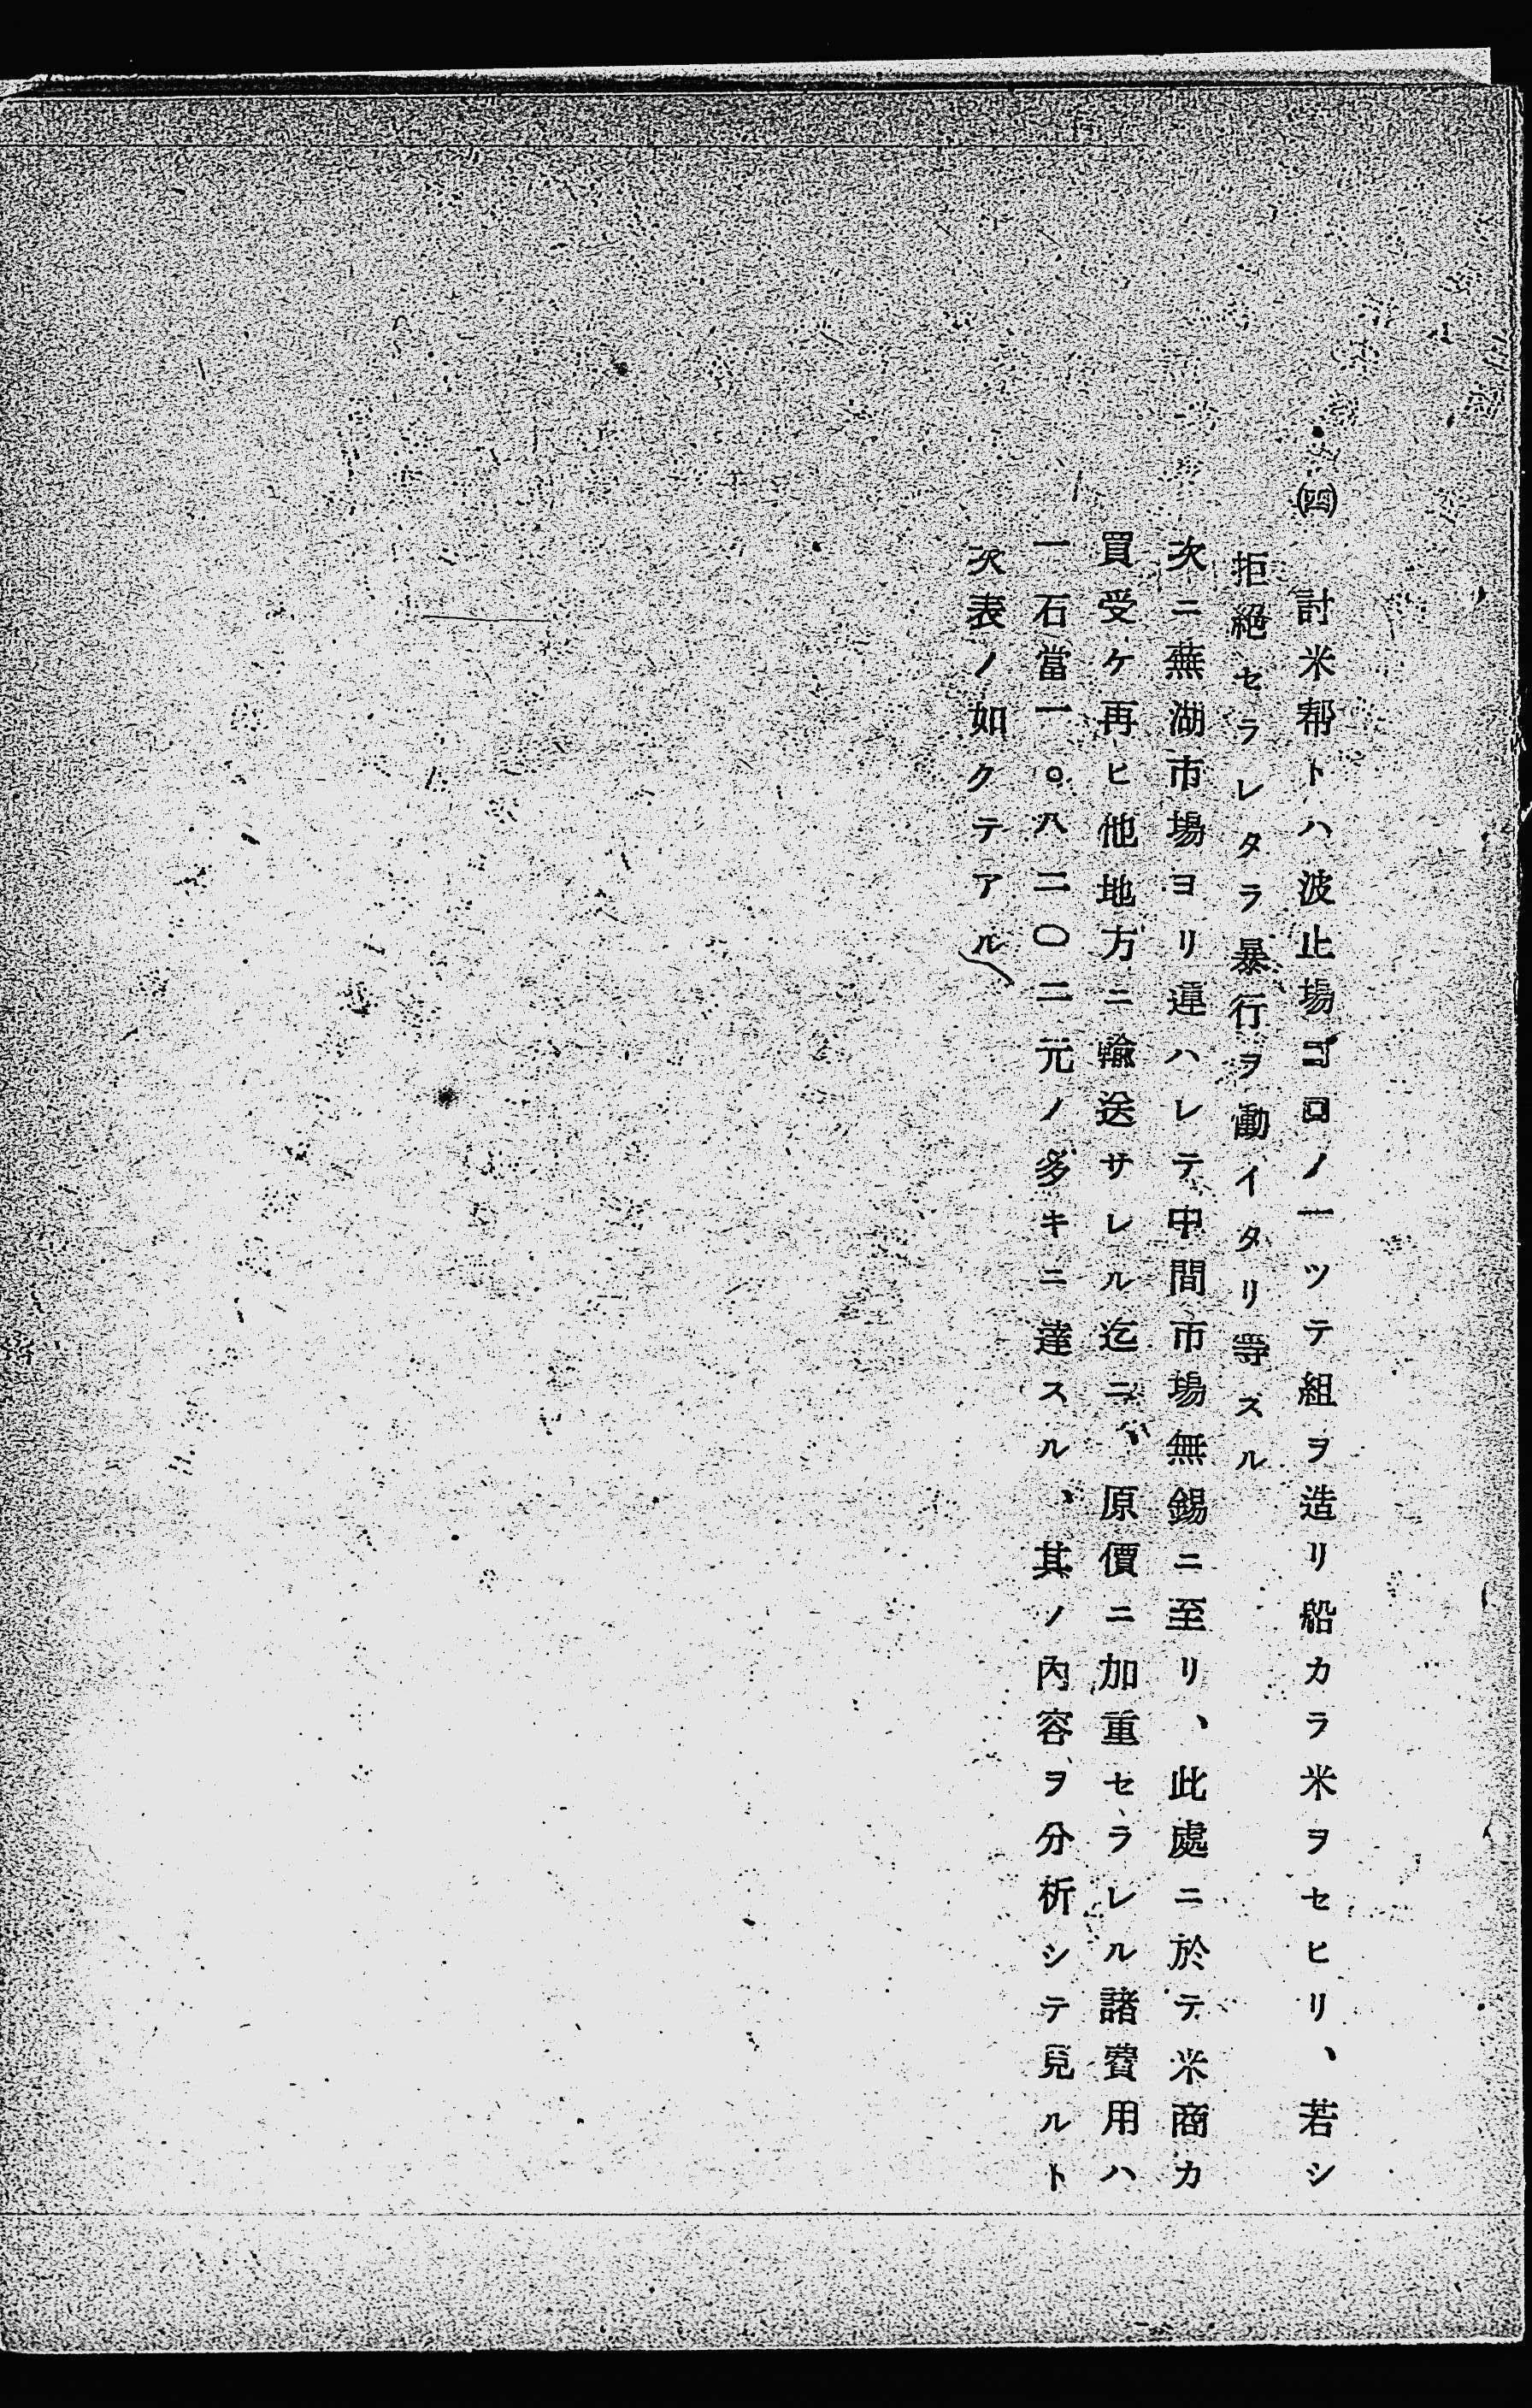 ㈣ 討米帮トハ波止場ゴロノ一ツテ組ヲ造リ船カラ米ヲセヒリ、若シ
拒絕セラレタラ暴行ヲ働イタリ等スル
次ニ蕪湖市場ヨリ運ハレテ中間市場無錫ニ至リ、此處ニ於テ米商カ
買受ケ再ヒ他地方ニ輸送サレル迄ニ原價ニ加重セラレル諸費用ハ
一石當一。八二〇二元ノ多キニ達スル、其ノ內容ヲ分析シテ見ルト
次表ノ如クテアル